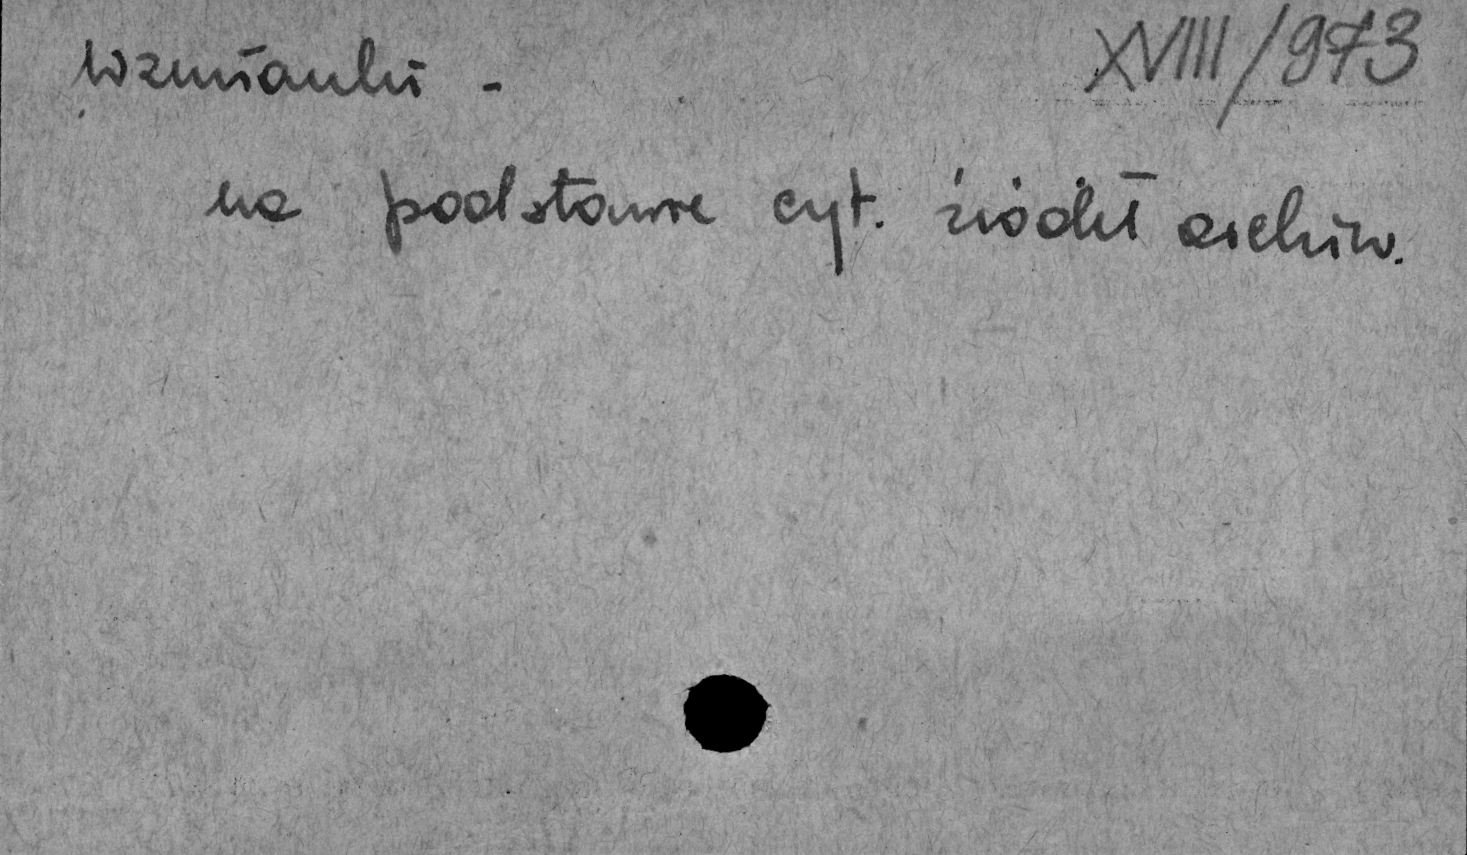 Wzmianki -
XVIII/973
na podstawie cyt. źródeł archiw.